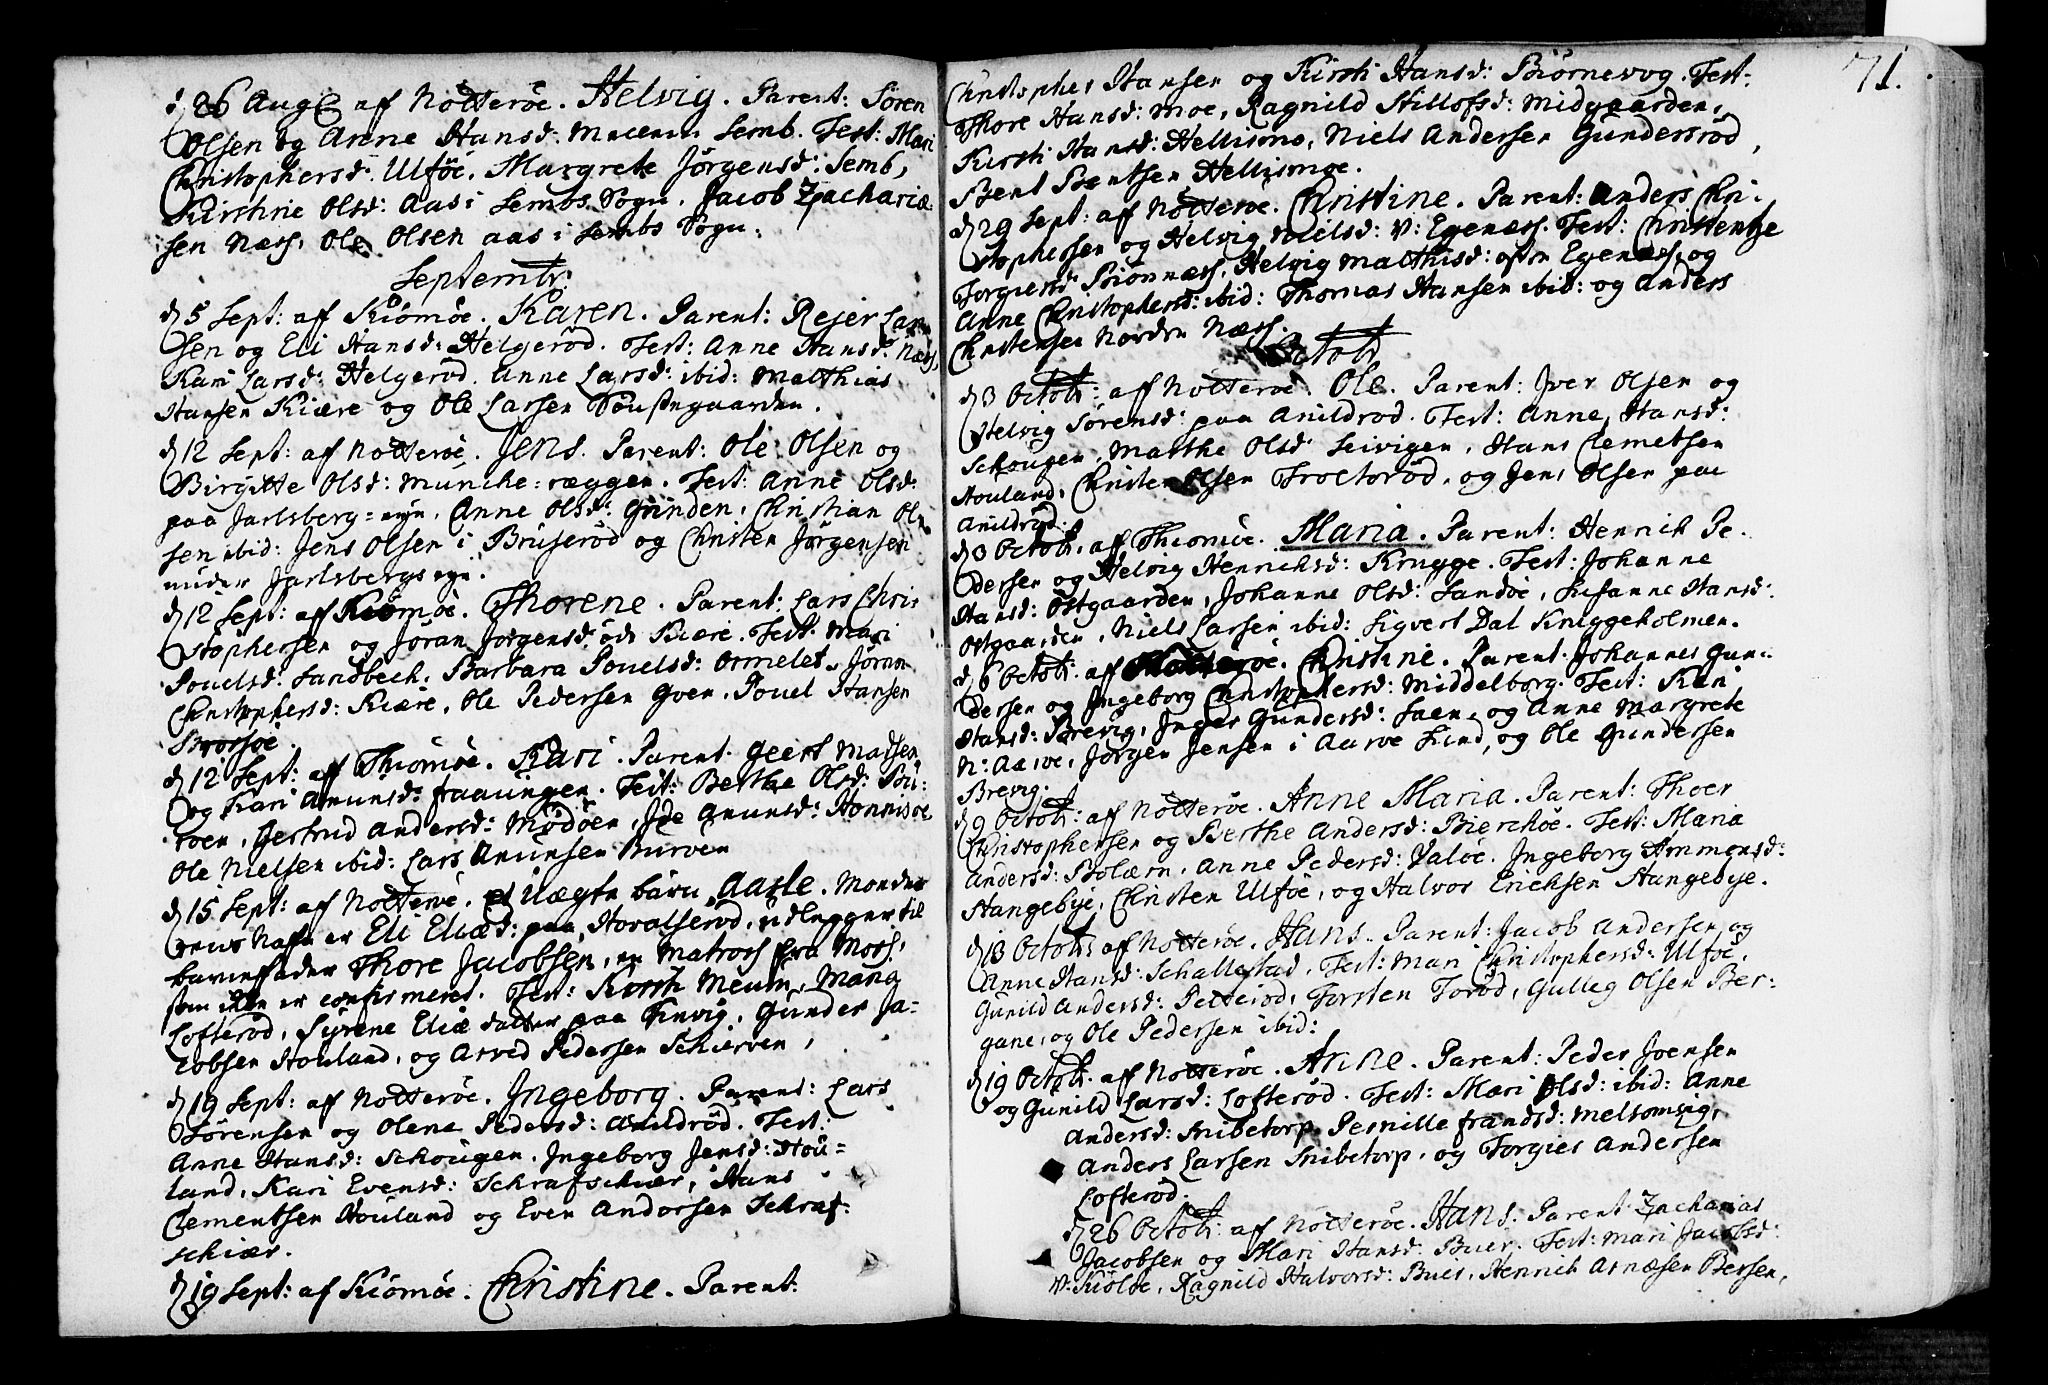 d 26 Aug: af Nötteröe. Helvig. Parent: Sören
Olsen og Anne Hansd: Semb. Test: Mari
Christophersd: Ulföe, Margrete Jörgensd: Semb,
Kirstine Olsd: Aas i Sembs Sogn, Jacob Zacharia-
sen Næss, Ole Olsen Aas i Sembs Sogn.
Septembr:
d 5 Sept: af Kiömöe. Karen. Parent: Rejer Lar-
sen og Eli Hansd: Helgeröd. Test: Anne Hansd: Næss,
Kari Larsd: Helgeröd, Anne Larsd: ibid: Matthias
Hansen Kiære og Ole Larsen.
d 12 Sept: af Nötteröe. Jens. Parent: Ole Olsen og
Birgitte Olsd: Munche-ræggen. Test: Anne Olsd:
paa Jarlsberg-eign, Anne Olsd: Grinden, Christian Ol-
sen ibid: Jens Olsen i Bruseröd og Christen Jörgensen
under Jarlsbergs
d 12 Sept: af Kiömöe. Thorene. Parent: Lars Chri-
stophersen og Jöran Jörgensd: Kiære. Test: Mari
Pouelsd: Sandbech, Barbara Pouelsd: Ormelet, Jöran
Christophersd: Kiære, Ole Pedersen Gven, Pouel Hansen
Brorsöe.
d 12 Sept: af Thiömöe. Kari. Parent: Geert Madsen
og Kari Amunsd: Test: Berthe Olsd: Bu-
röen, Gertrud Andersd: Mödöen, Ide Amunsd: Honnisöe
Ole Nielsen ibid: Lars Amunsen Burven
d 15 Sept: af Nötteröe, et Uægte barn, Aasle. Moders
navn er Eli Eliæd: paa Hovalseröd, udlegger til
barnefader Thore Jacobsen, en Matros fra Moss,
som ikke er confirmeret. Test: Kirsti Meum, Mang
Lofteröd, Syrene Eliæ datter paa Gruvig, Gunder Ja-
cobsen Houland, og Arved Pedersen Schierven,
d 19 Sept: af Nötteröe. Ingeborg. Parent: Lars
Sörensen og Olena Pedersd: Anildröd. Test:
Anne Hansd: Schougen, Ingeborg Jensd: Hou-
land, Kari Evensd: Schrafschiær, Hans
Clementsen Houland og Even Andersen Schraf-
schiær.
d 19 Sept: af Kiömöe. Christine. Parent:
71.
Christopher Hansen og Kirsti Hansd: Biörnevog. Test:
Thore Hansd: Moe, Ragnild Stillofsd: Midgaarden,
Kirsti Hansd: Hellismo, Niels Andersen Gunderröd,
Bent Bentsen Hellismoe.
d 29 Sept: af Nötteröe. Christine. Parent: Anders Chri-
stophersen og Helvig Nielsd: V: Egenæss. Test: Christentze
Torgiersd: Biönnæss, Helvig Matthisd: östre Egenæss, og
Anne Christophersd: ibid: Thomas Hansen ibid: og Anders
Christensen Nordre Næss.
Octobr:
d 3 Octobr: af Nötteröe. Ole. Parent: Iver Olsen og
Helvig Sörensd: paa Anildröd. Test: Anne Hansd:
Schougen, Marthe Olsd: Leivigen, Hans Clemetsen
Houland, Christen Olsen Troeteröd, og Jens Olsen paa
Anildröd.
d 3 Octobr: af Thiömöe. Maria. Parent: Henrich Pe-
dersen og Helvig Henrichsd: Krugge. Test: Johanne
Hansd: Östgaarden, Johanne Olsd: Sandöe, Susanne Hansd:
Östgaarden, Niels Larsen ibid: Sigvert Dal Kruggeholmen.
d 6 Octobr: af Nötteröe. Christine. Parent: Johannes Gun-
dersen og Ingeborg Christophersd: Middelborg. Test: Kari
Hansd: Brevig, Inger Gundersd: Saen, og Anne Margrete
N: Aaröe, Jörgen Jensen i Aaröe Sund, og Ole Gundersen
Brevig.
d 9 Octobr: af Nötteröe. Anne Maria. Parent: Thoer
Christophersen og Berthe Andersd: Bierchöe. Test: Maria
Andersd: Bolærn, Anne Pedersd: Valöe, Ingeborg Ammonsd:
Hangebye, Christen Ulföe, og Halvor Erichsen Hangebye.
d 13 Octobr: af Nötteröe. Hans. Parent: Jacob Andersen og
Anne Hansd: Schallestad, Test: Mari Christophersd: Ulföe,
Gunild Andersd: Petteröd, Torsten Toröd, Gulleg Olsen Ber-
gane, og Ole Pedersen ibid:
d 19 Octobr: af Nötteröe. Anne. Parent: Peder Joensen
og Gunild Larsd: Lofteröd. Test: Mari Olsd: ibid: Anne
Andersd: Snibetorp, Pernille Frandsd: Melsomvig,
Anders Larsen Snibetorp, og Torgies Andersen
Lofteröd.
d 26 Octobr: af Nötteröe. Hans. Parent: Zacharias
Jacobsen og Mari Hansd: Buer. Test: Mari Jacobsd:
V: Kiölöe, Ragnild Halvorsd: Buer, Henrich Arnæsen Bersen,